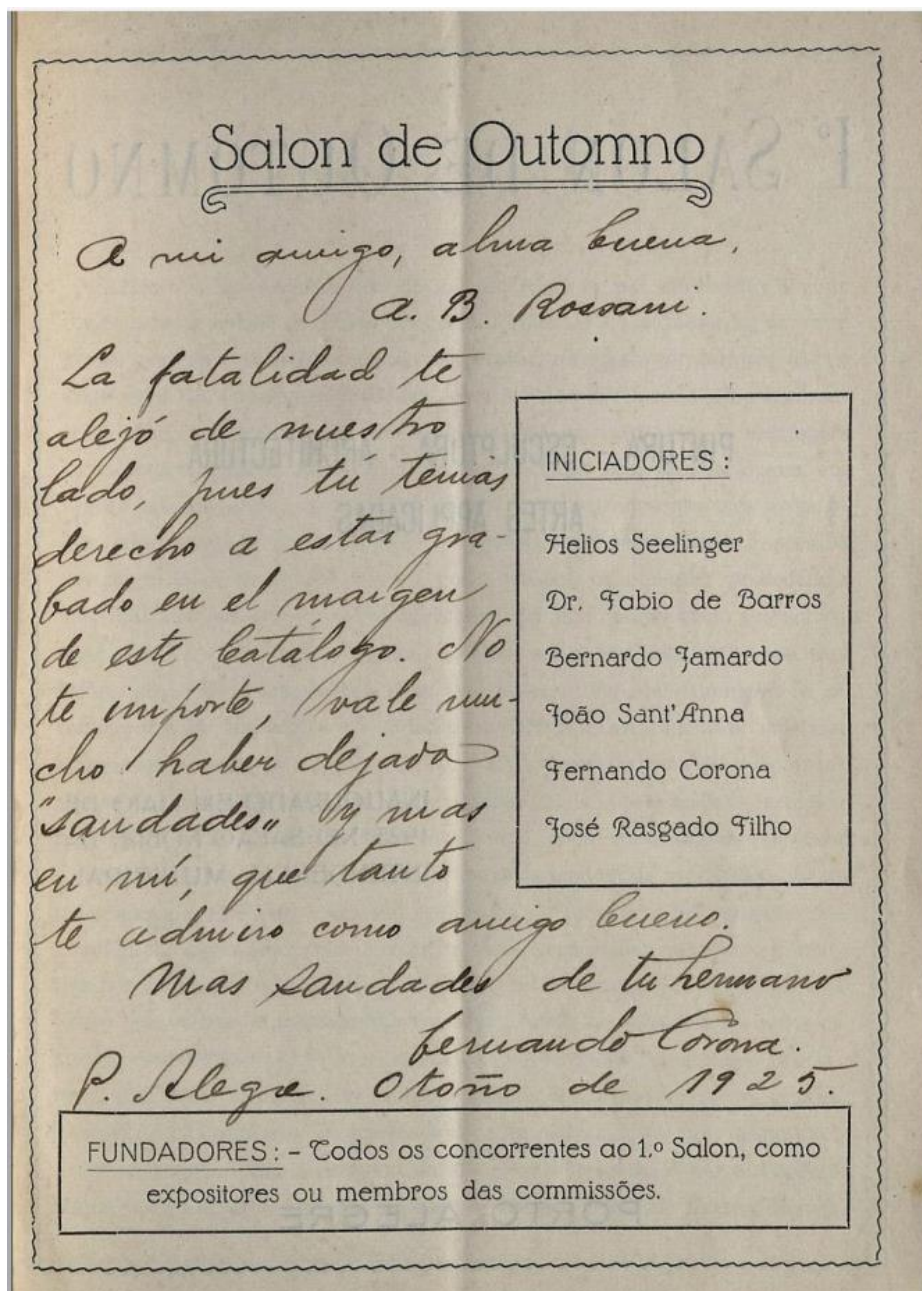 Salon de Outomno
A mi amigo, alma buena,
A. B. Rossani.
La fatalidad te
alejó de nuestro
lado, pues tú tenias
derecho a estar gra-
bado en el margen
de este Catálogo. No
te importe, vale mu-
cho haber dejado
"saudades" y mas
en mí, que tanto
te admiro como amigo bueno.
Mas saudades de tu hermano
Fernando Corona.
P. Alegre. Otoño de 1925.
INICIADORES:
Helios Seelinger
Dr. Fabio de Barros
Bernardo Jamardo
João Sant'Anna
Fernando Corona
José Rasgado Filho
FUNDADORES: - Todos os concorrentes ao 1.º Salon, como
expositores ou membros das commissões.